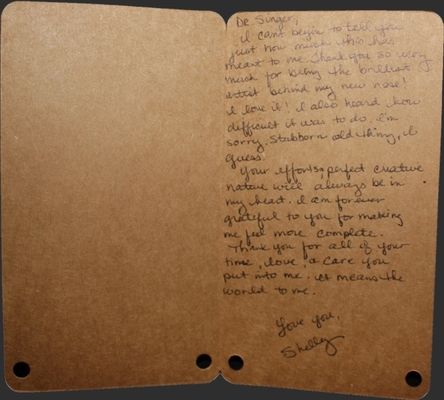 Dr. Singer,
I can't begin to tell you
just how much this has
meant to me. Thank you so very
much for being the brilliant
artist behind my new nose!
I love it! I also heard how
difficult it was to do. I'm
sorry. Stubborn old thing, I
guess.
Your efforts & perfect creative
nature will always be in
my heart. I am forever
grateful to you for making
me feel more complete.
Thank you for all of your
time, love, & care you
put into me. It means the
world to me.
Love you,
Shelly